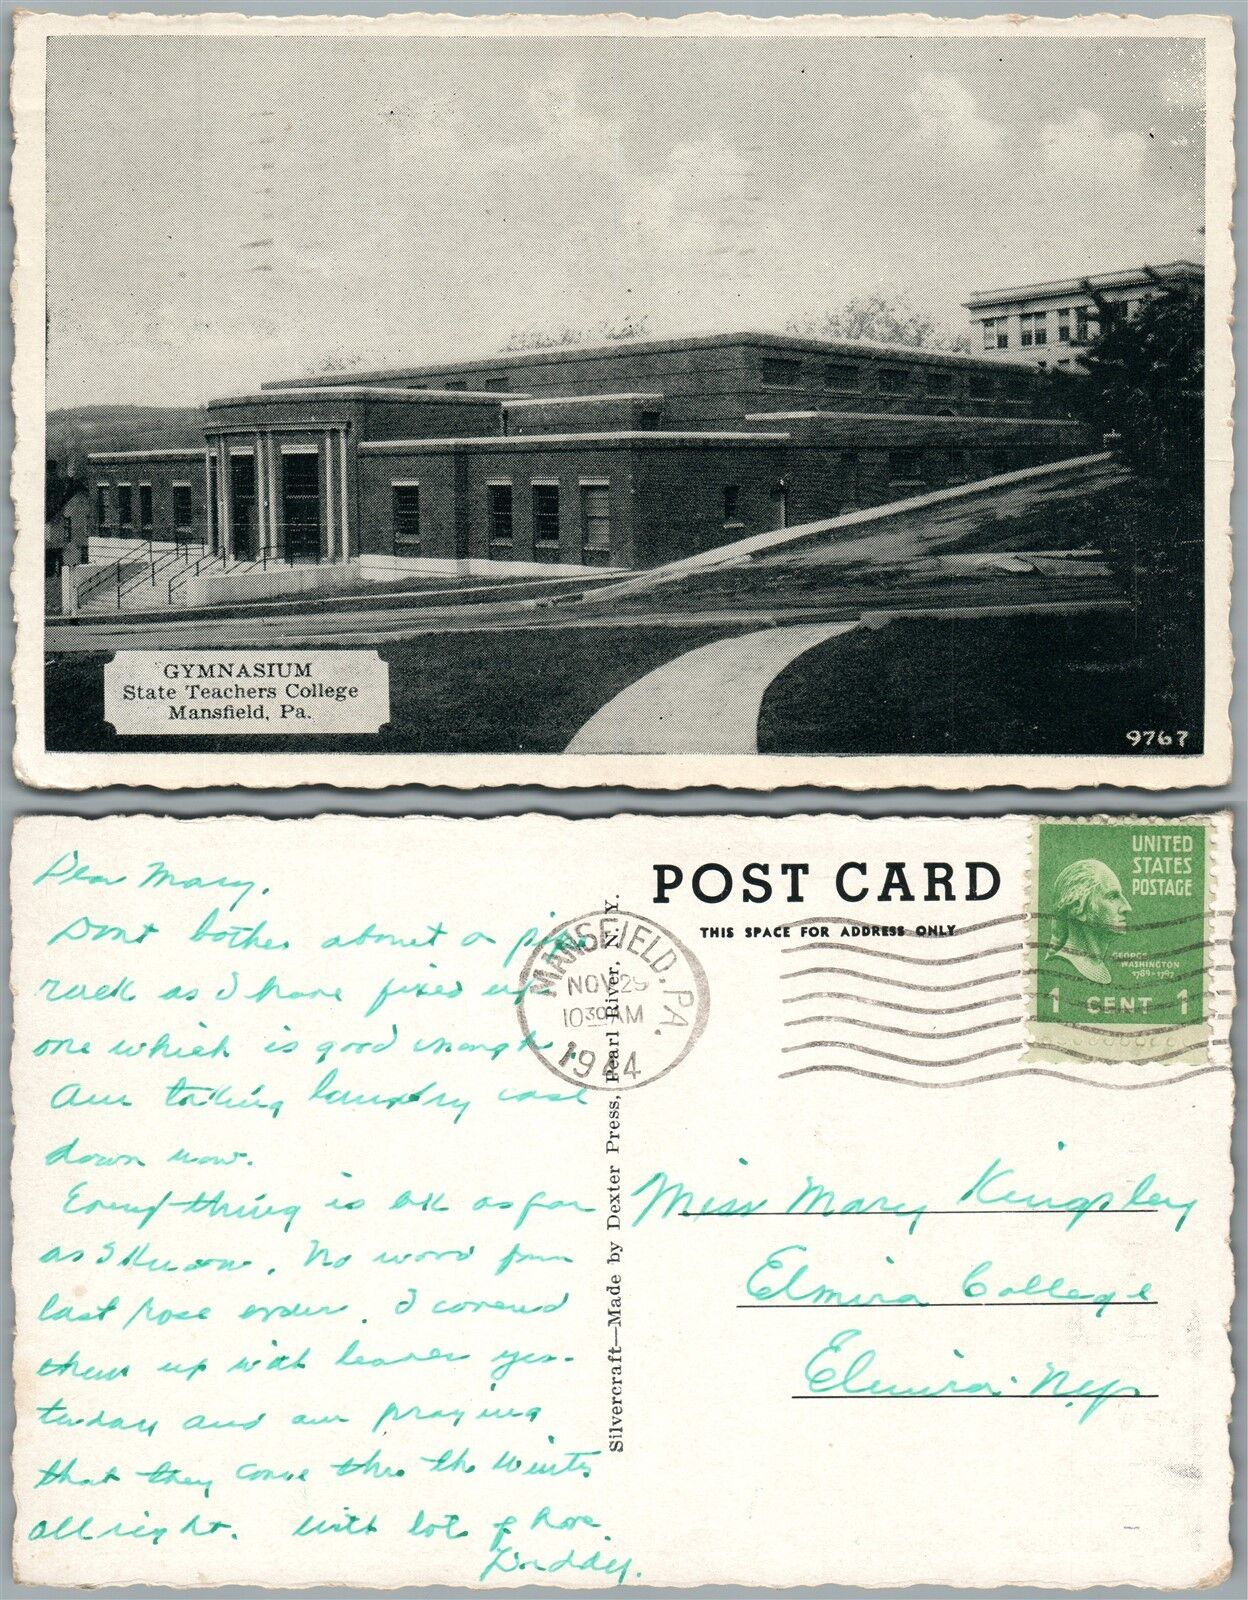 GYMNASIUM
State Teachers College
Mansfield, Pa.
9767
Dear Mary,
Dont bother about a pipe
rack as I have fixed up
one which is good enough.
Am taking laundry case
down now.
Everything is OK as far
as I know. No word from
last rose order. I covered
them up with leaves yes-
terday and am praying
that they come thru the winter
allright. With lots of love
POST CARD
THIS SPACE FOR ADDRESS ONLY
MANSFIELD, PA.
NOV 29
10 30 AM
1944
UNITED
STATES
POSTAGE
GEORGE
WASHINGTON
1789-1797
1 CENT 1
Silvercraft—Made by Dexter Press, Pearl River, N. Y.
Miss Mary Kingsley
Elmira College
Elmira N.Y.